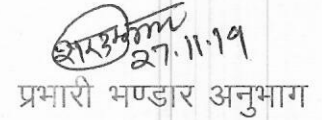 27.11.19
प्रभारी भण्डार अनुभाग